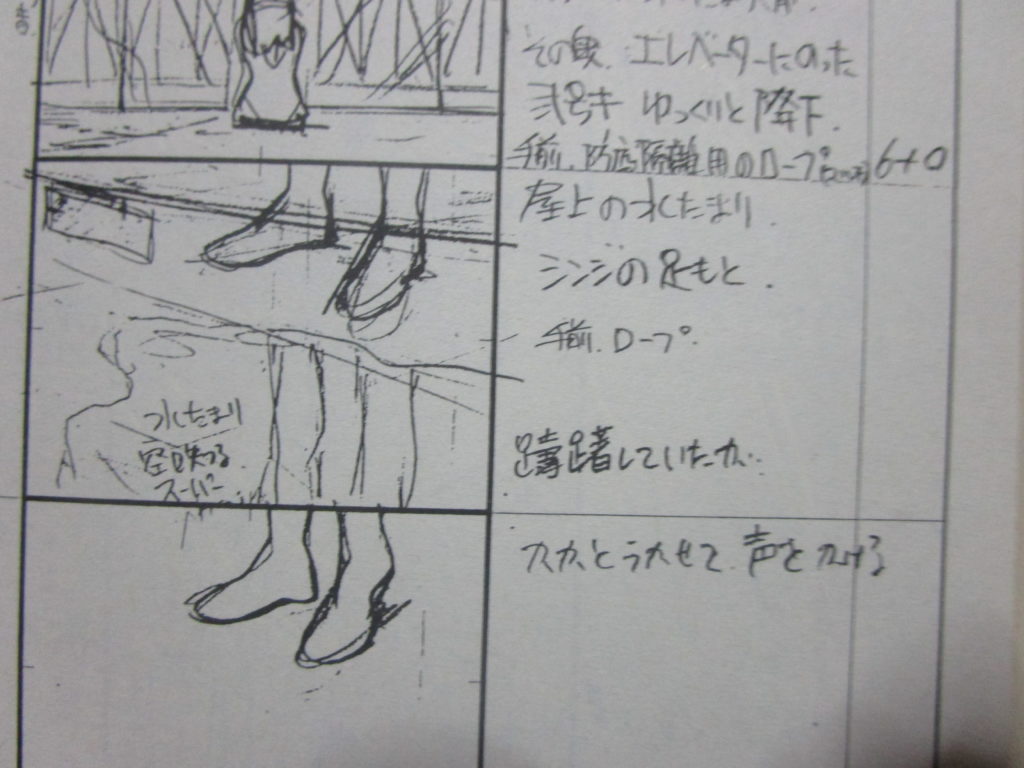 その奥、エレベーターにのった
弐号キ ゆっくりと降下.
手前、防疫隔離用のロープ
6+0
屋上の水たまり.
シンジの足もと.
手前、ロープ.
水たまり
空映つる
スーパー
躊躇していたが..
カカとうかせて、声をかける